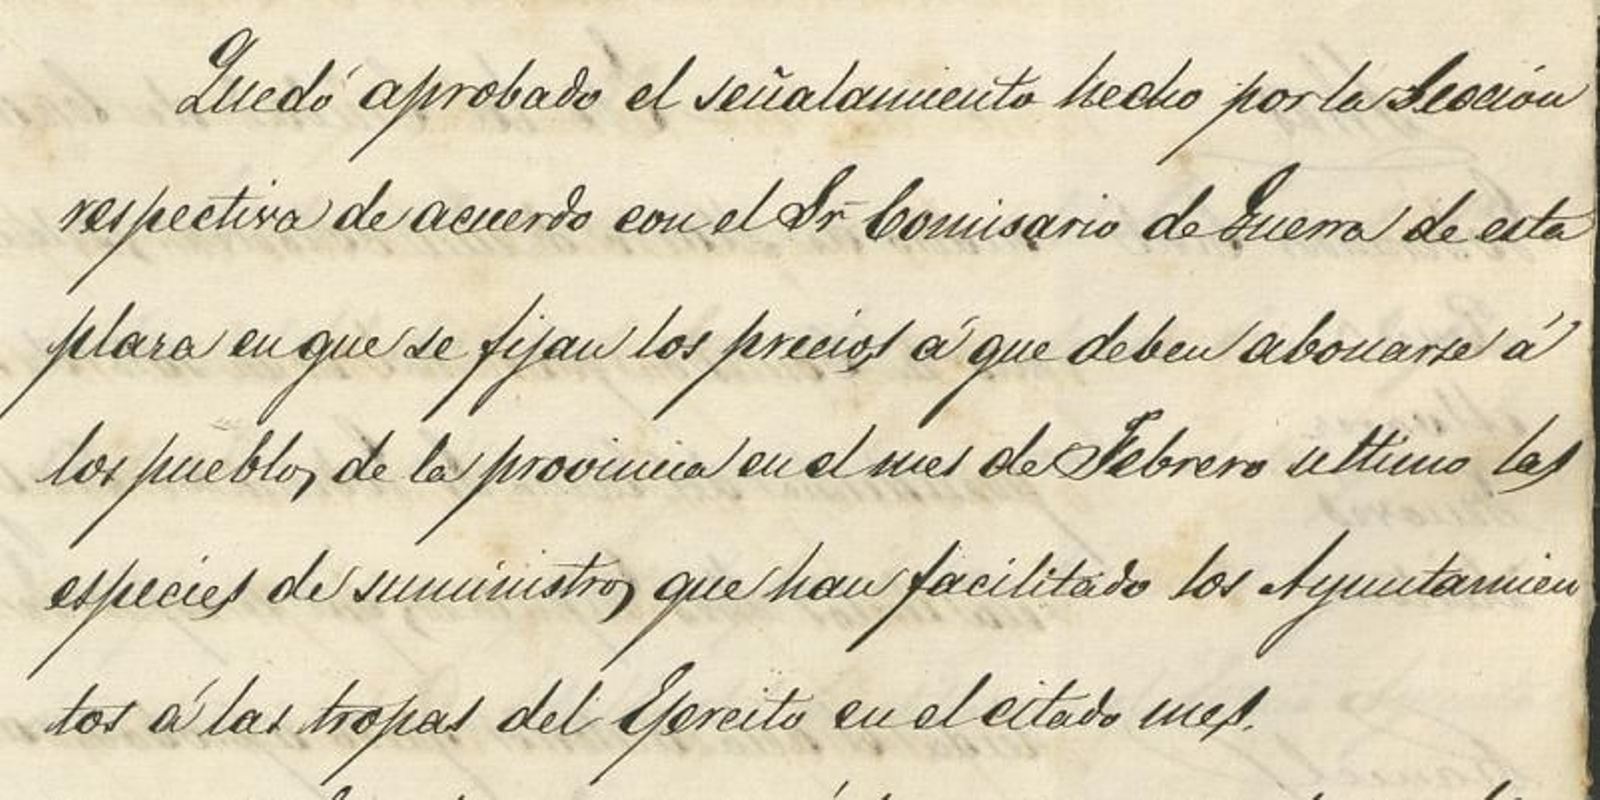 Quedó aprobado el señalamiento hecho por la Sección
respectiva de acuerdo con el Sr Comisario de Guerra de esta
plaza en que se fijan los precios á que deben abonarse á
los pueblos de la provincia en el mes de Febrero ultimo las
especies de suministros que han facilitado los Ayuntamien
tos á las tropas del Ejercito en el citado mes.